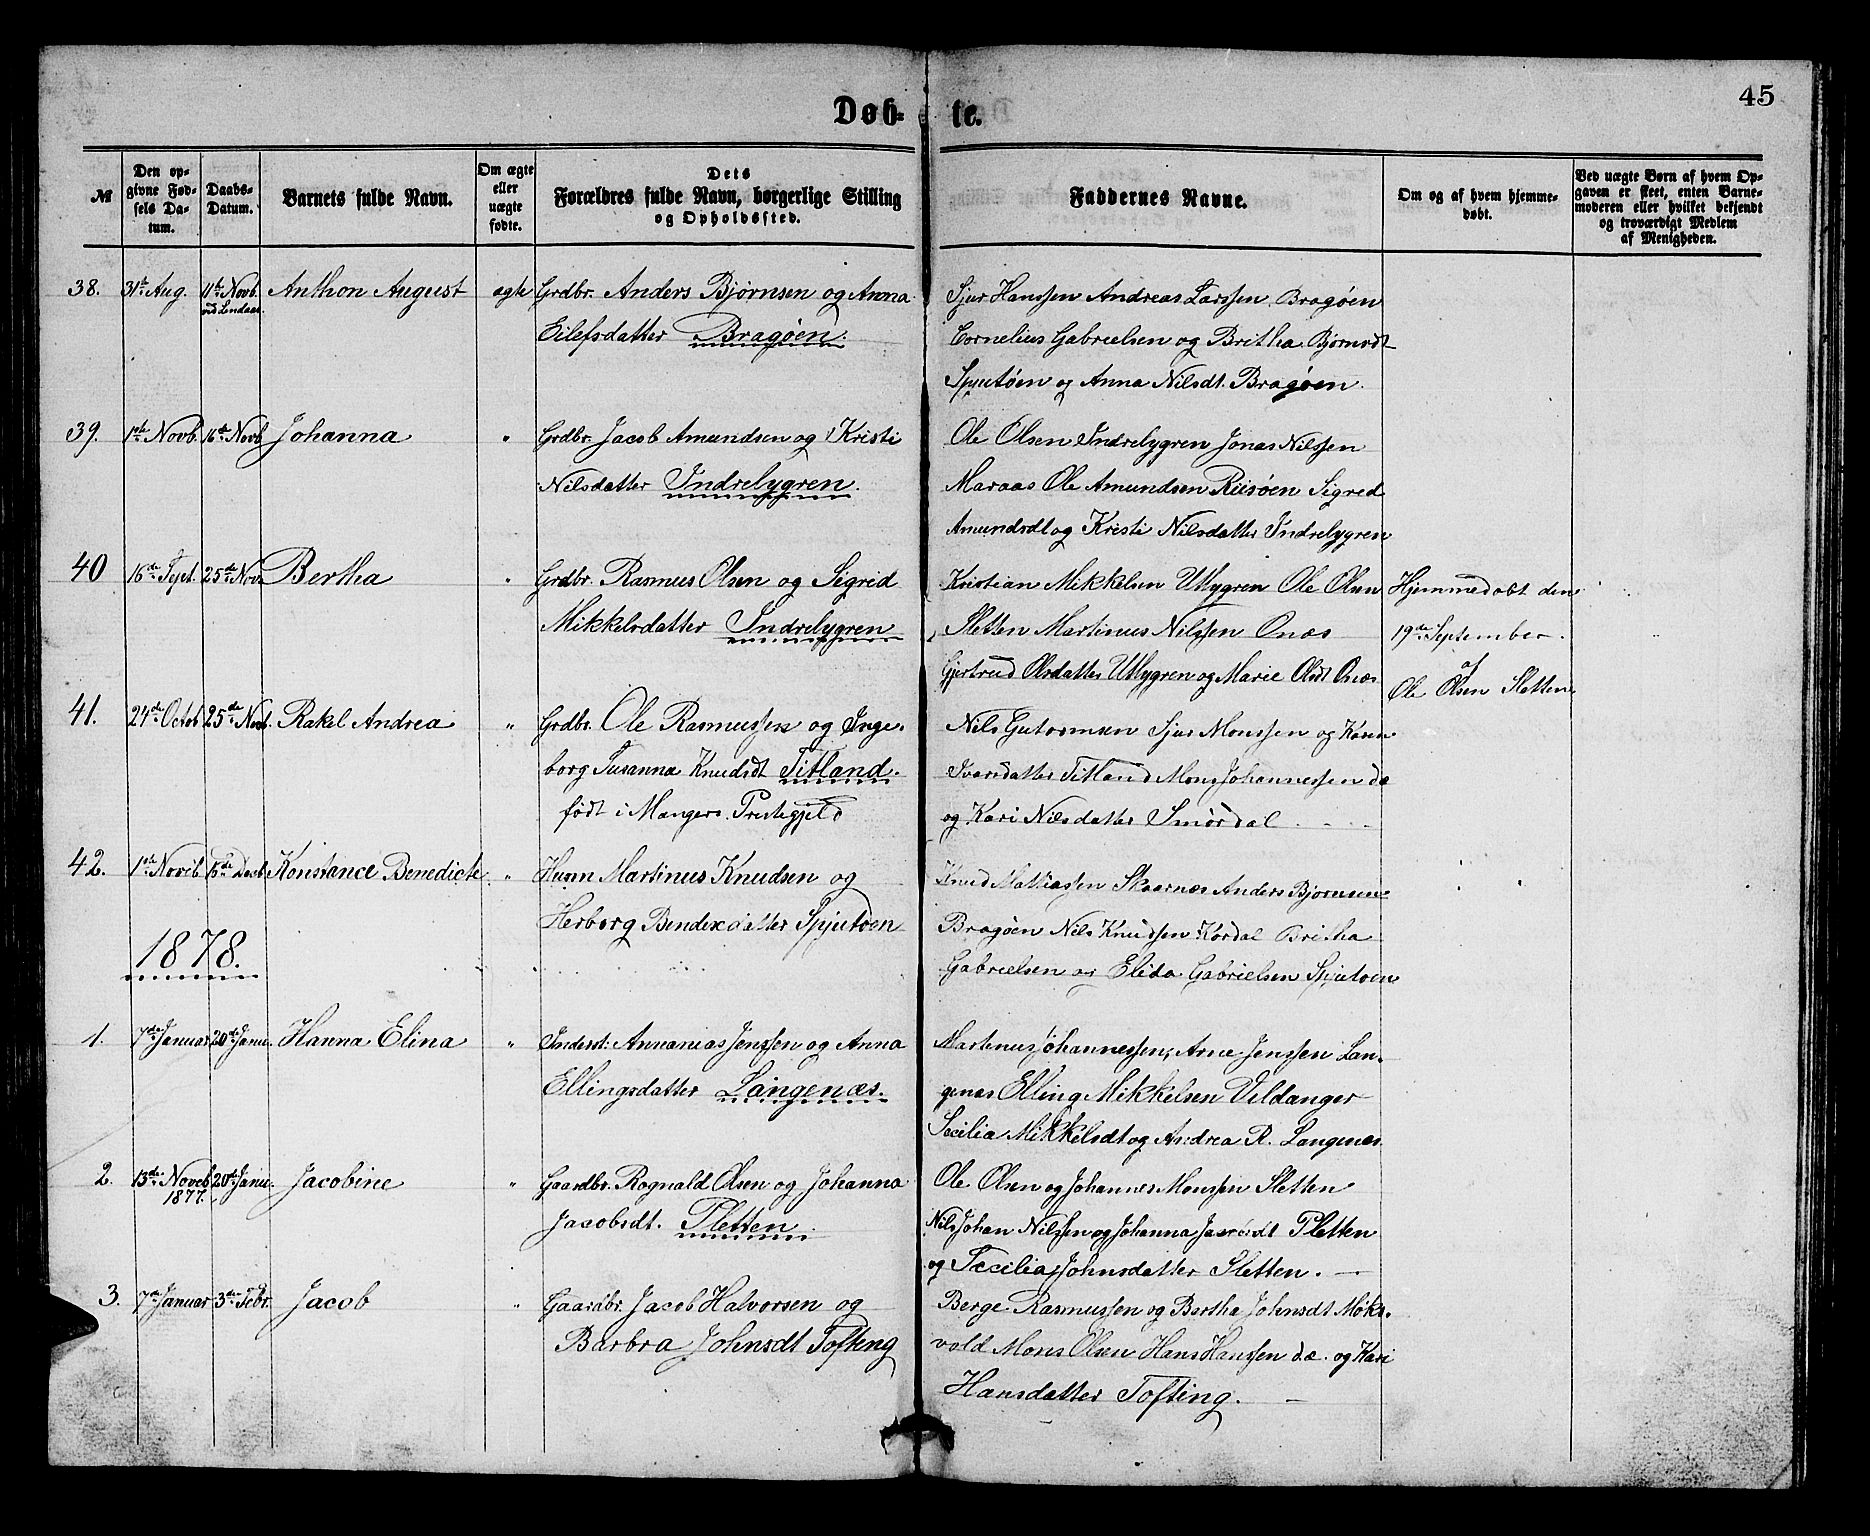 45
Døb- te.
№
Den opgivne Fødsels Datum.
Daabs-Datum.
Barnets fulde Navn.
Om ægte eller uægte fødte.
Dets Forældres fulde Navn, borgerlige Stilling og Opholdssted.
Faddernes Navne.
Om og af hvem hjemmedøbt.
Ved uægte Børn af hvem Opgaven er skeet, enten Barnemoderen eller hvilket bekjendt og troværdigt Medlem af Menigheden.
38. 31te Aug. 11te Novb. ved Lindaas Anthon August ægte Grdbr. Anders Bjørnsen og Anna
Eilefsdatter Bragøen.
Sjur Hanssen Andreas Larssen Bragøen
Cornelius Gabrielsen og Britha Bjørnsdt
Spjutøen og Anna Nilsdt. Bragøen.
39. 1ste Novb. 16de Novb Johanna " Grdbr. Jacob Amundsen og Kristi
Nilsdatter Indrelygren.
Ole Olsen Indrelygren Jonas Nilssen
Maraas Ole Amundsen Riisøen Sigred
Amundsdt og Kristi Nilsdatter Indrelygren
40 16de Sept. 25de Nov. Bertha " Grdbr. Rasmus Olsen og Sigrid
Mikkelsdatter Indrelygren
Kristian Mikkelsen Utlygren Ole Olsen
Sletten Martinus Nilssen Onæs
Gjertrud Olsdatter Utlygren og Marie Olsdt Onæs
Hjemmedøbt den
19de September
af
Ole Olsen Sletten
41. 24de Octob 25de Nov. Rakel Andrea " Grdbr. Ole Rasmussen og Inge-
borg Susanna Knudsdt Titland.
født i Mangers Prestegjeld
Nils Guttormsen Sjur Monssen og Karen
Ivarsdatter Titland Mons Johannessen dæ
og Kari Nilsdatter Smørdal
42. 1ste Novb. 15de Decb. Konstance Benedicte " Husm Martinus Knudsen og
Herborg Bendexdatter Spjutøen
Knud Mathiassen Skaarnæs Anders Bjørnsen
Bragøen Nils Knudssen Kordal Britha
Gabrielsen og Elida Gabrielsen Spjutøen
1878.
1. 7de Januar 20de Janu. Hanna Elina " Inderst: Annanias Jenssen og Anna
Ellingsdatter Langenæs.
Martinus Johannessen, Arne Jenssen Lan-
genæs Elling Mikkelsen Vildanger
Secilia Mikkelsdt og Andrea R. Langenæs.
2. 13de Noveb 1877. 20de Janu. Jacobine " Gaardbr. Rognald Olsen og Johanna
Jacobsdt. Pletten.
Ole Olsen og Johannes Monssen Sletten
Nils Johan Nilssen og Johanna Jacobsdt Pletten
og Cecilia Johnsdatter Sletten.
3. 7de Januar 3de Febr. Jacob " Gaardbr. Jacob Halvorsen og
Barbra Johnsdt Tofting
Berge Rasmussen og Bertha Johnsdt Møks-
vold Mons Olsen Hans Hanssen d.æ. og Kari
Hansdatter Tofting.